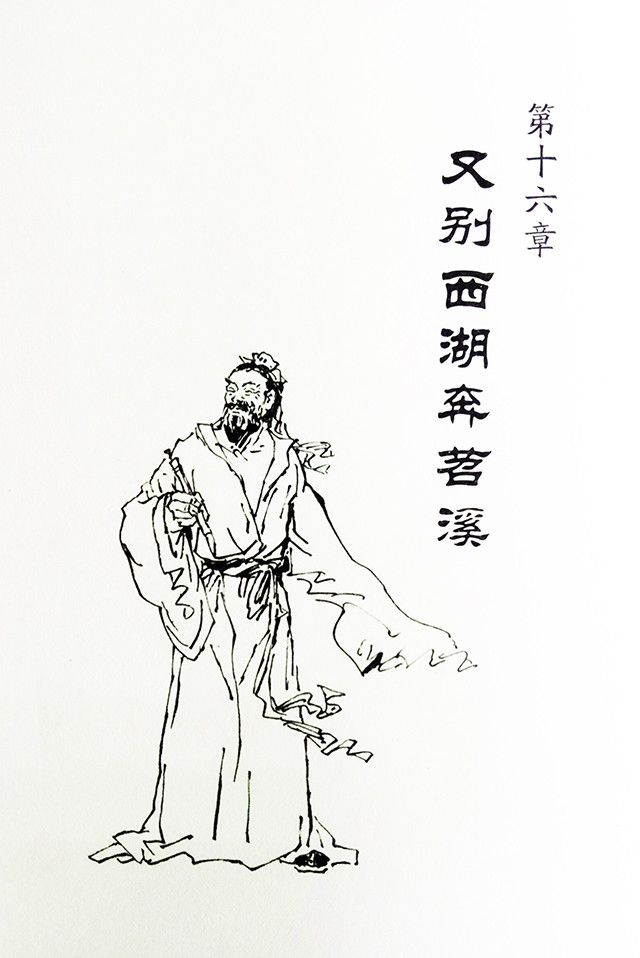 第十六章
又别西湖奔苕溪